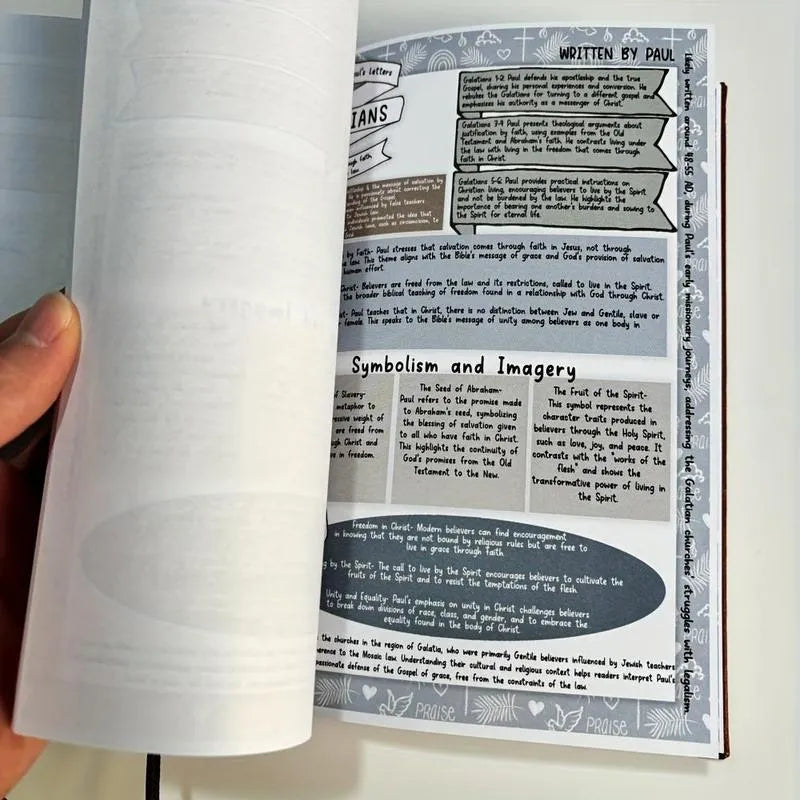 WRITTEN BY PAUL
Paul's letters
IANS
through faith
law
Galatians 1-2: Paul defends his apostleship and the true
Gospel, sharing his personal experiences and conversion. He
rebukes the Galatians for turning to a different gospel and
emphasizes his authority as a messenger of Christ.
Galatians 3-4: Paul presents theological arguments about
justification by faith, using examples from the Old
Testament and Abraham's faith. He contrasts living under
the law with living in the freedom that comes through
faith in Christ.
Galatians 5-6: Paul provides practical instructions on
Christian living, encouraging believers to live by the Spirit
and not be burdened by the law. He highlights the
importance of bearing one another's burdens and sowing to
the Spirit for eternal life.
& the message of salvation by
is passionate about correcting the
of the Gospel
influenced by false teachers
to Jewish law
individuals promoted the idea that
Jewish laws, such as circumcision, to
by Faith- Paul stresses that salvation comes through faith in Jesus, not through
law. This theme aligns with the Bible's message of grace and God's provision of salvation
human effort.
Christ- Believers are freed from the law and its restrictions, called to live in the Spirit.
the broader biblical teaching of freedom found in a relationship with God through Christ.
Paul teaches that in Christ, there is no distinction between Jew and Gentile, slave or
female. This speaks to the Bible's message of unity among believers as one body in
Symbolism and Imagery
of Slavery-
metaphor to
weight of
are freed from
Christ and
in freedom.
The Seed of Abraham-
Paul refers to the promise made
to Abraham's seed, symbolizing
the blessing of salvation given
to all who have faith in Christ.
This highlights the continuity of
God's promises from the Old
Testament to the New.
The Fruit of the Spirit-
This symbol represents the
character traits produced in
believers through the Holy Spirit,
such as love, joy, and peace. It
contrasts with the "works of the
flesh" and shows the
transformative power of living in
the Spirit.
Freedom in Christ- Modern believers can find encouragement
in knowing that they are not bound by religious rules but are free to
live in grace through faith.
by the Spirit- The call to live by the Spirit encourages believers to cultivate the
fruits of the Spirit and to resist the temptations of the flesh.
Unity and Equality- Paul's emphasis on unity in Christ challenges believers
to break down divisions of race, class, and gender, and to embrace the
equality found in the body of Christ.
the churches in the region of Galatia, who were primarily Gentile believers influenced by Jewish teachers
to the Mosaic law. Understanding their cultural and religious context helps readers interpret Paul's
passionate defense of the Gospel of grace, free from the constraints of the law.
likely written around 48-55 AD during Paul's early missionary journeys, addressing the Galatian churches' struggles with legalism.
PRAISE
PRAISE